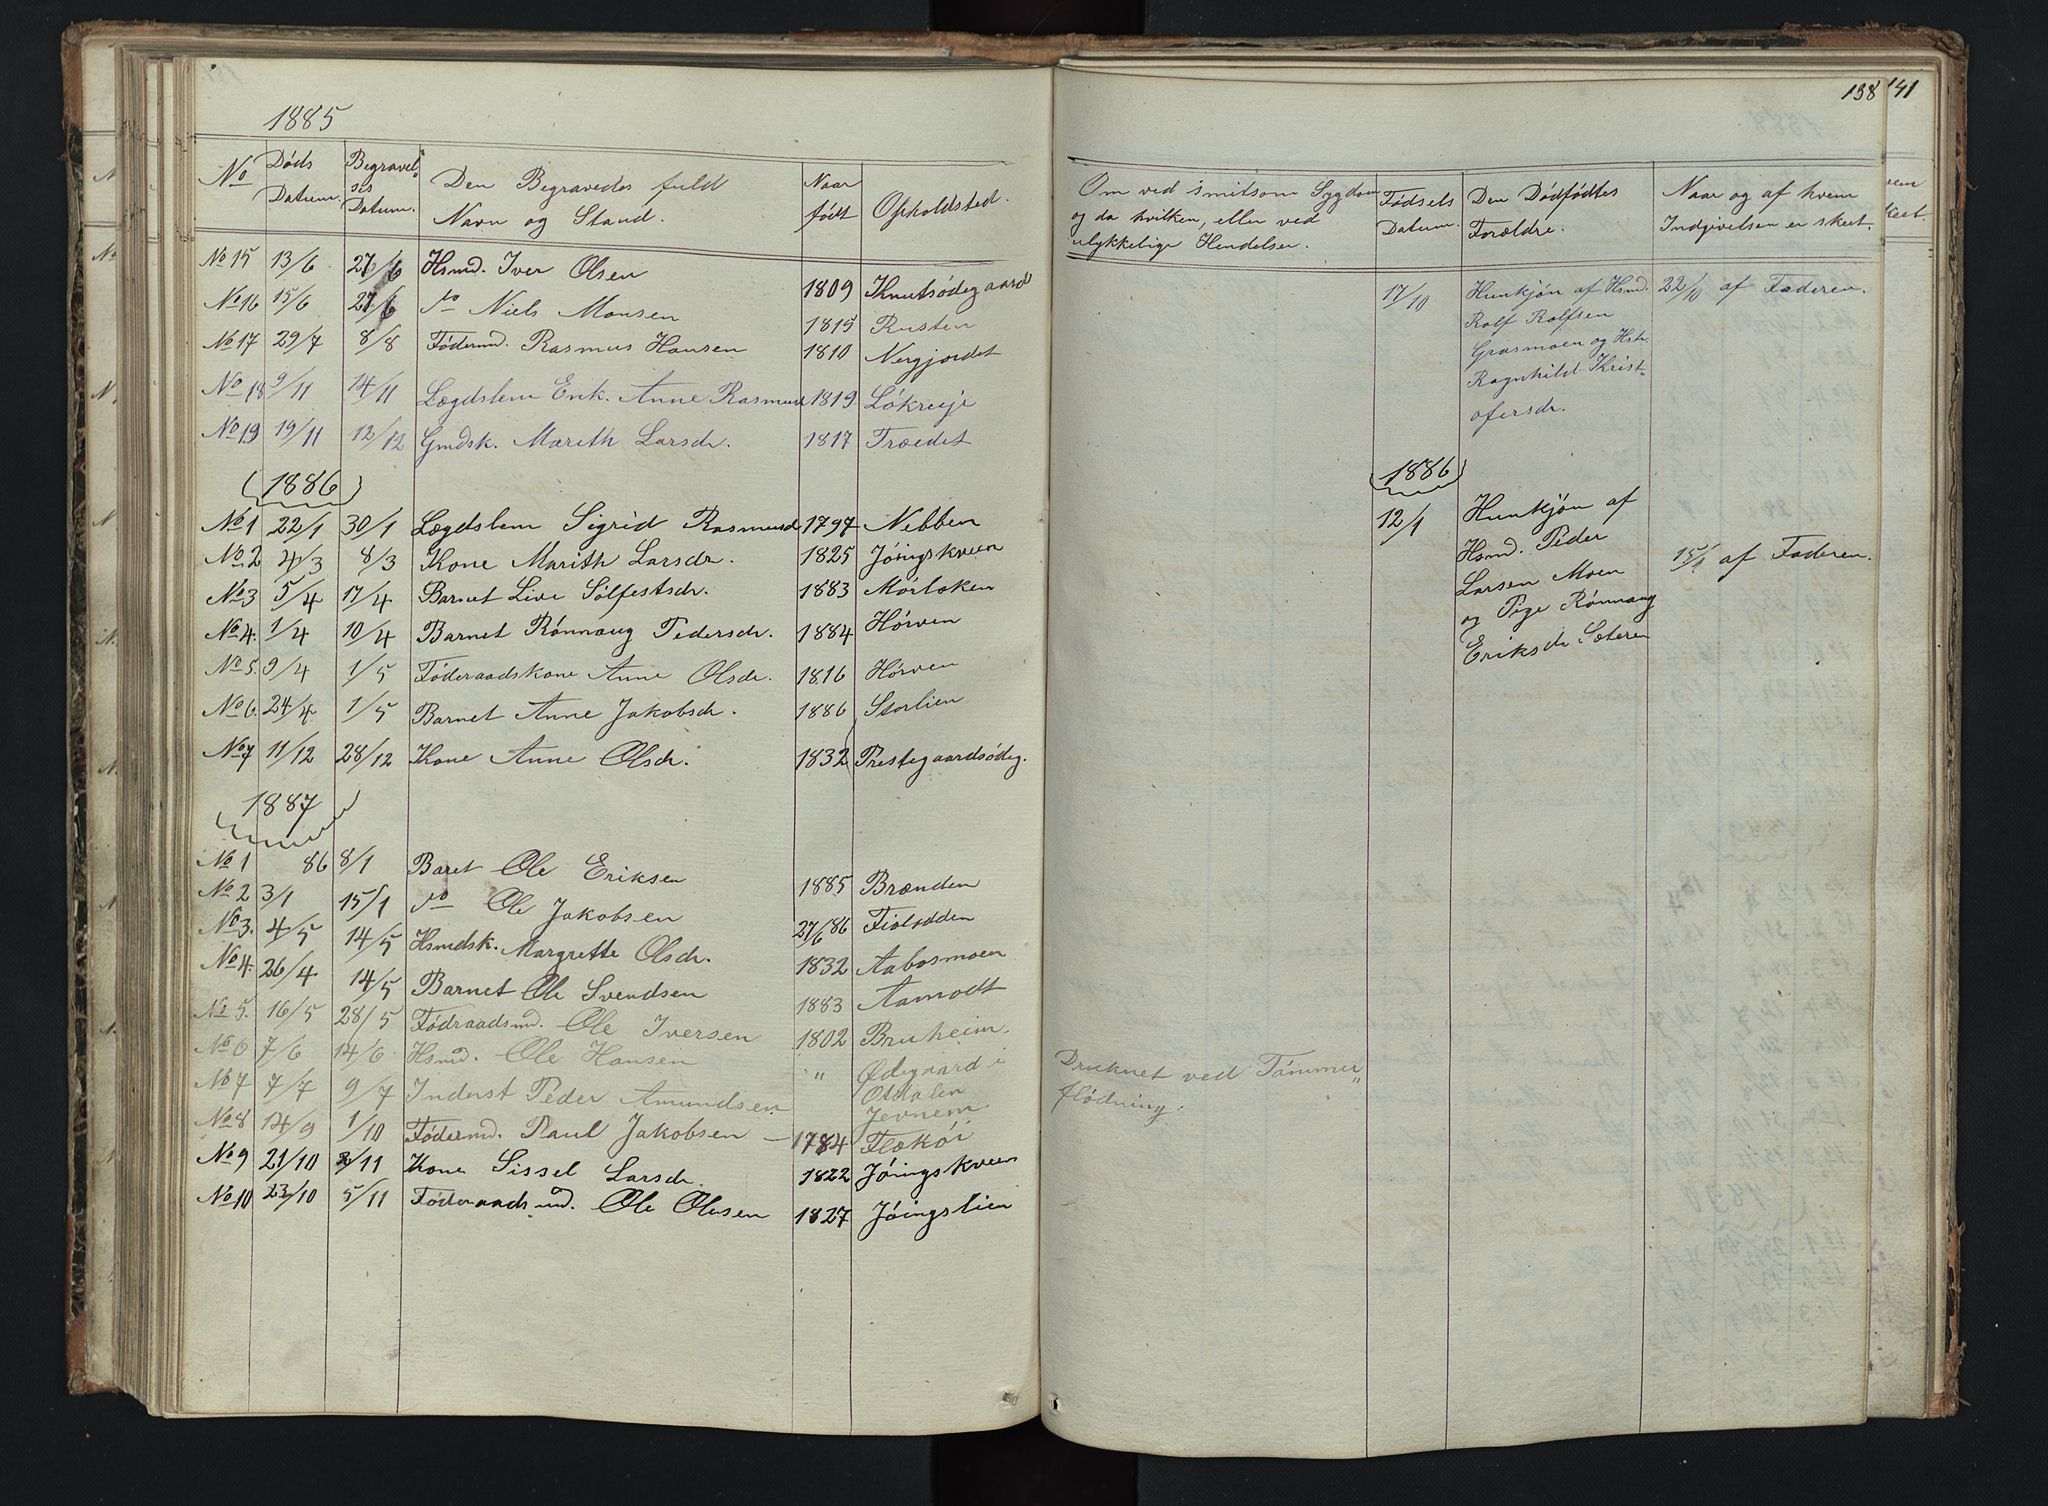 1885
No
Døds Datum.
Begravelses Datum.
Den Begravedes fuld Navn og Stand.
Naar født
Opholdsted.
No 15 13/6 27/6 Hsmd. Iver Olsen 1809 Knutsødegaard
No 16 15/6 27/6 do Niels Monsen 1815 Rusten
No 17 29/7 8/8 Födermd. Rasmus Hansen 1810 Nergjordet
No 18 9/11 14/11 Lægdslem Enk. Anne Rasmusd 1819 Lökreije
No 19 19/11 12/12 Gmdsk. Marith Larsdr. 1817 Træedet
1886
No 1 22/1 30/1 Lægdslem Sigrid Rasmusd 1797 Nebben
No 2 4/3 8/3 Kone Marith Larsdr. 1825 Jöingskveen
No 3 5/4 17/4 Barnet Live Sölfestsdr. 1883 Mörloken
No 4. 1/4 10/4 Barnet Rönnaug Pedersdr. 1884 Hörven
No 5. 9/4 1/5 Föderaadskone Anne Olsdr. 1816 Hörven
No 6. 24/4 1/5 Barnet Anne Jakobsdr. 1886 Storlien
No 7 11/12 28/12 Kone Anne Olsdr. 1832 Prestegaardsödeg.
1887
No 1 86 8/1 Baret Ole Eriksen 1885 Brænden
No 2 3/1 15/1 do Ole Jakobsen 27/6 86 Fiolodden
No 3. 4/5 14/5 Hsmdsk. Margrette Olsdr. 1832 Aabosmoen
No 4. 26/4 14/5 Barnet Ole Svendsen 1883 Aamodt
No 5. 16/5 28/5 Födraadsmd. Ole Iversen 1802 Bruheim.
No 6 7/6 14/6. Hsmd. Ole Hansen " Ödegaard i Ottdalen
No 7 7/7 9/7 Inderst Peder Amundsen Jevnem
No 8 14/9 1/10 Födermd. Paul Jakobsen – 1784 Flæköi
No 9 21/10 /11 Kone Sissel Larsdr. 1822 Jöingskveen
No 10 23/10 5/11 Föderaadsmd. Ole Olsen 1827 Jöingslien
138
141
Om ved smitsom Sygdom
og da hvilken, eller ved
ulykkelige Hendelser.
Fødsels Datum.
Den Dødfødtes Forældre.
Naar og af hvem
Indgivelsen er skeet.
17/10 Hunkjön af Hsmd. 22/10 af Faderen.
Rolf Rolfsen
Grasmoen og Hstr.
Ragnhild Krist-
ofersdr.
1886
12/1 Hunkjön af
Hsmd. Peder
Larsen Moen 15/1 af Faderen.
og Pige Rönnaug
Eriksdr Sæteren
Druknet ved Tömmer"
flödning.